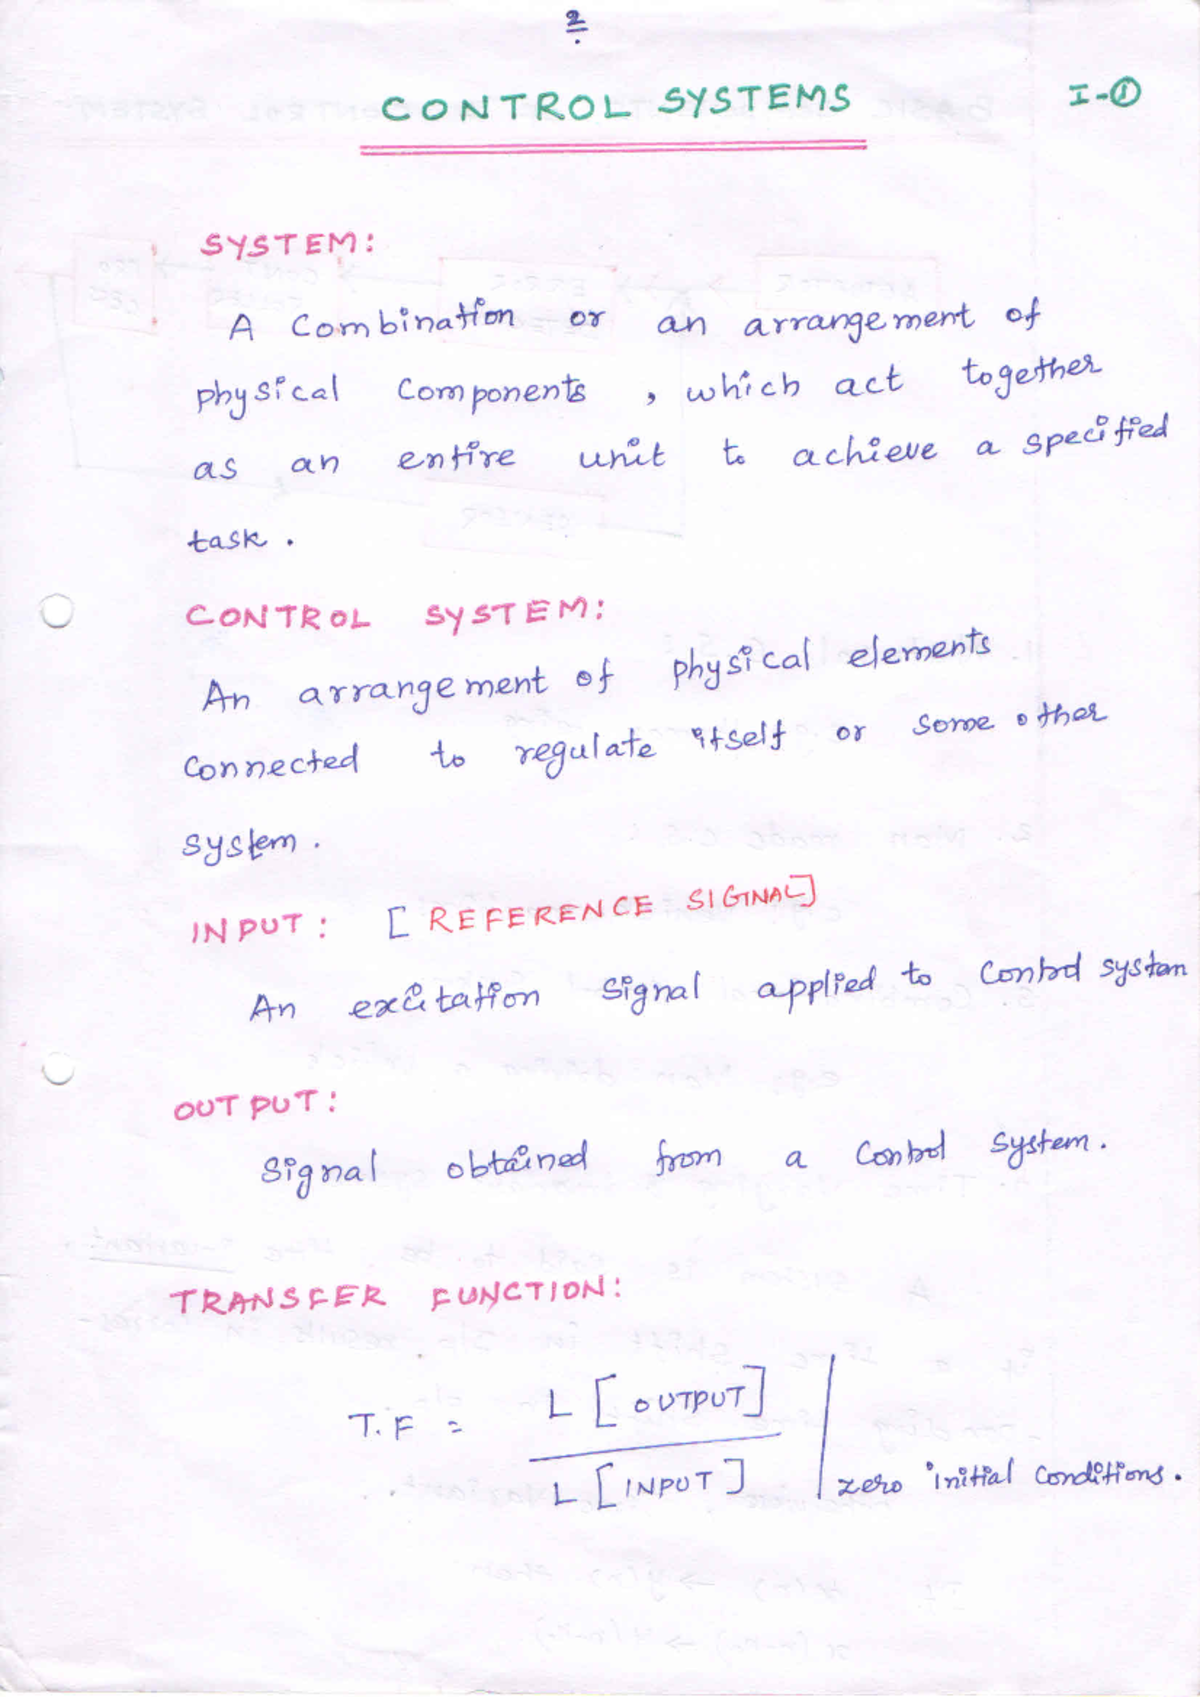 2
CONTROL SYSTEMS I-①
SYSTEM:
A Combination or an arrangement of
physical Components, which act together
as an entire unit to achieve a specified
task.
CONTROL SYSTEM:
An arrangement of physical elements
Connected to regulate itself or some other
system.
INPUT: [REFERENCE SIGNAL]
An excitation signal applied to Control system
OUTPUT:
Signal obtained from a Control system.
TRANSFER FUNCTION:
T.F = L[OUTPUT]
L[INPUT] | zero initial conditions.